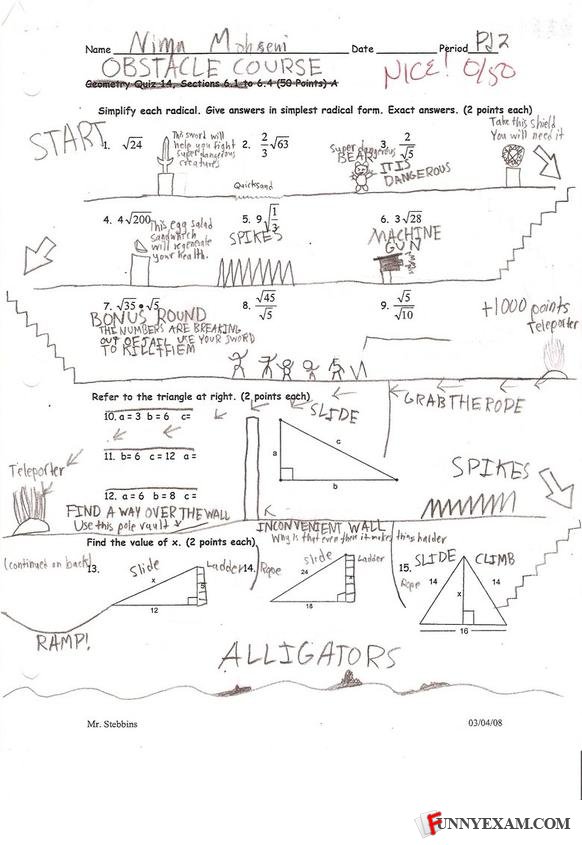 Name Nima Mohseni Date Period Pd 2
OBSTACLE COURSE
Geometry Quiz 14, Sections 6.1 to 6.4 (50 Points) A
NICE! 0/50
Simplify each radical. Give answers in simplest radical form. Exact answers. (2 points each)
START
1. √24
This sword will
help you fight
super dangerous
creatures
2. 2/3 √63
Quicksand
Super dangerous
BEAR
3. 2/√5
IT IS
DANGEROUS
Take this shield
You will need it
4. 4√200
This egg salad
sandwhich
will regenerate
your health.
5. 9√1/3
SPIKES
6. 3√28
MACHINE
GUN
7. √35 • √5
BONUS ROUND
THE NUMBERS ARE BREAKING
OUT OF JAIL USE YOUR SWORD
TO KILL THEM
8. √45/√5
9. √5/√10
+1000 points
Teleporter
Refer to the triangle at right. (2 points each)
10. a = 3 b = 6 c=
SLIDE
GRAB THE ROPE
11. b= 6 c = 12 a=
a
c
b
12. a = 6 b = 8 c=
Teleporter
FIND A WAY OVER THE WALL
Use this pole vault
SPIKES
INCONVENIENT WALL
Why is that even there it makes things harder
Find the value of x. (2 points each)
(continued on back)
13.
Slide
x
Ladder
12
14.
Rope
slide
24
Ladder
x
18
15.
SLIDE
CLIMB
Rope
14
x
14
16
RAMP!
ALLIGATORS
Mr. Stebbins
03/04/08
FUNNYEXAM.COM